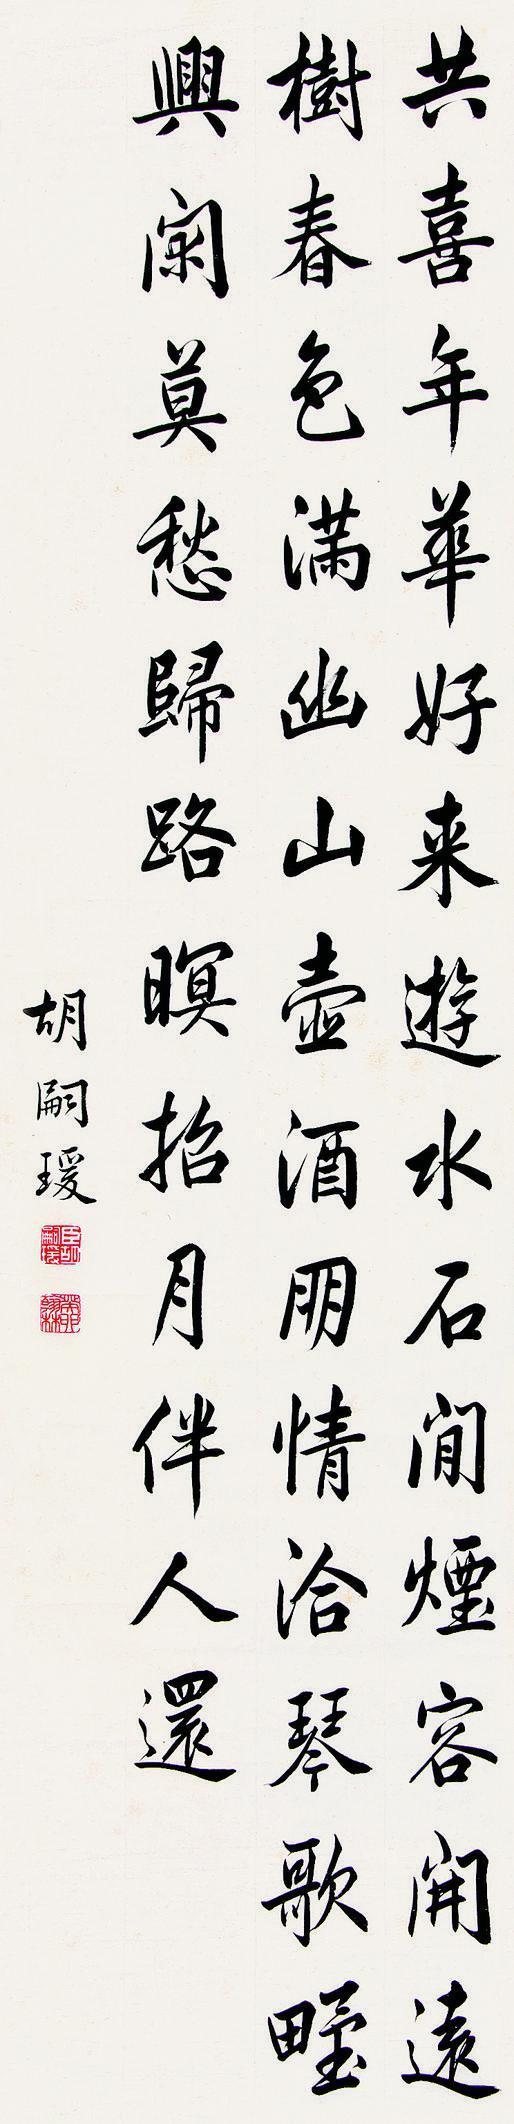 共喜年華好来遊水石間煙容開遠
樹春色滿幽山壺酒朋情洽琴歌野
興闌莫愁歸路暝招月伴人還
胡嗣瑗